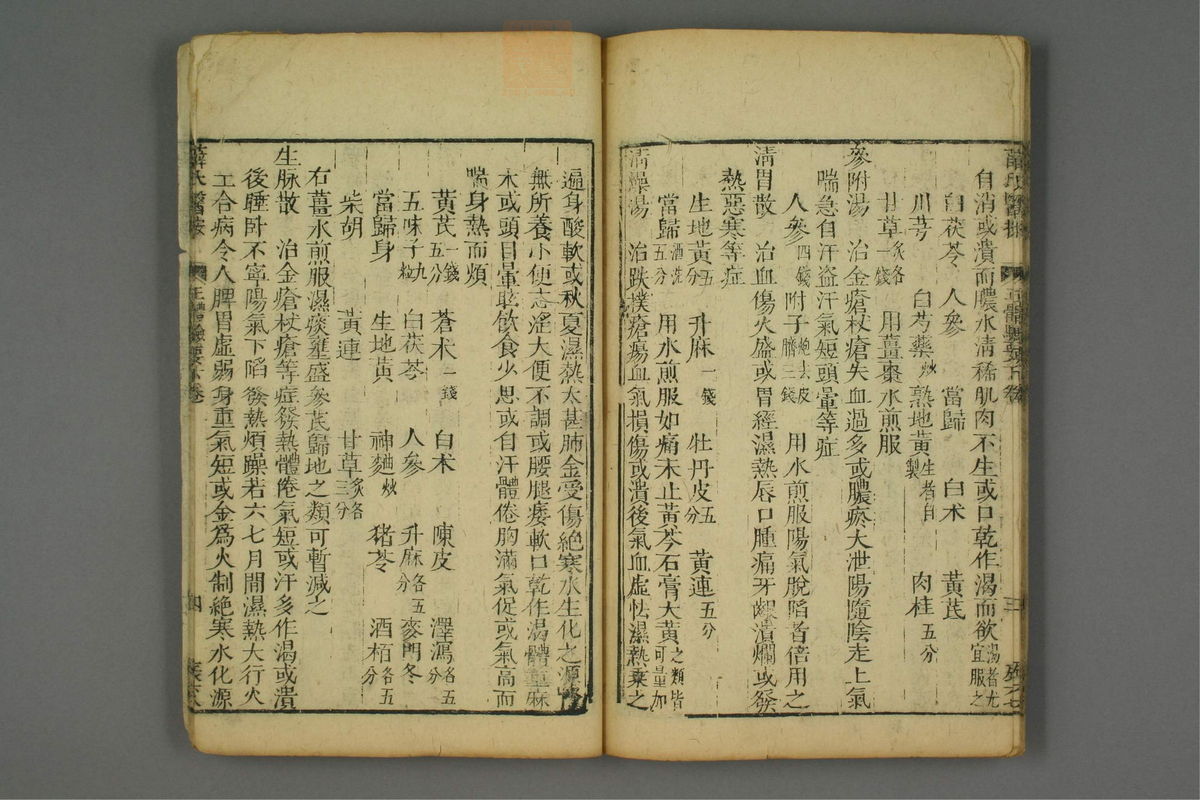 自消或潰而膿水清稀肌肉不生或口乾作渴而欲湯者尤宜服之
白茯苓 人參 當歸 白术 黃芪
川芎 白芍藥炒 熟地黃生者自製 肉桂五分
甘草炙各一錢 用薑棗水煎服
參附湯 治金瘡杖瘡失血過多或膿瘀大泄陽隨陰走上氣
喘急自汗盜汗氣短頭暈等症
人參四錢 附子炮去皮臍三錢 用水煎服陽氣脫陷者倍用之
清胃散 治血傷火盛或胃經濕熱唇口腫痛牙齦潰爛或發
熱惡寒等症
生地黃五分 升麻一錢 牡丹皮五分 黃連五分
當歸酒洗五分 用水煎服如痛未止黃芩石膏大黃之類皆可量加
清燥湯 治跌撲瘡瘍血氣損傷或潰後氣血虛怯濕熱乘之
遍身酸軟或秋夏濕熱太甚肺金受傷絕寒水生化之源
無所養小便赤澁大便不調或腰腿痿軟口乾作渴體重麻
木或頭目暈眩飲食少思或自汗體倦胸滿氣促或氣高而
喘身熱而煩
黃芪一錢五分 蒼术一錢 白术 陳皮 澤瀉各五分
五味子九粒 白茯苓 人參 升麻各五分 麥門冬
當歸身 生地黃 神麯炒 猪苓 酒栢各五分
柴胡 黃連 甘草炙各三分
右薑水煎服濕痰壅盛參芪歸地之類可暫減之
生脉散 治金瘡杖瘡等症發熱體倦氣短或汗多作渴或潰
後睡卧不寧陽氣下陷發熱煩躁若六七月間濕熱大行火
工合病令人脾胃虛弱身重氣短或金爲火制絕寒水化源
薛氏醫按 正體類要下卷 四